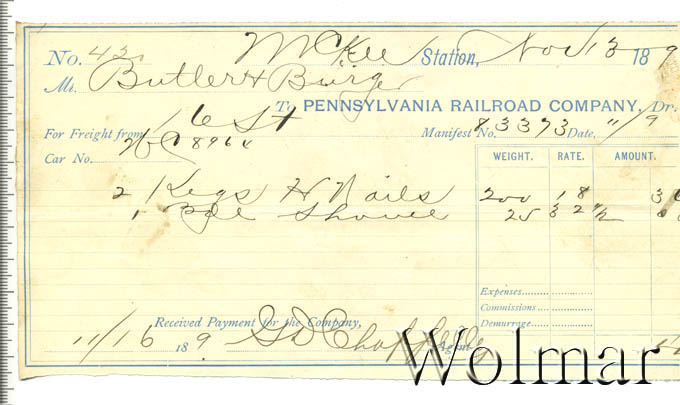 No. 420 McKee Station, Nov 13 189
Mr. Butler & Burge
To PENNSYLVANIA RAILROAD COMPANY, Dr.
For Freight from 16 St Manifest No. 83373 Date, 11/9
Car No. 8964
WEIGHT. RATE. AMOUNT.
2 Kegs H Nails 200 18 36
1 Bdl Shovel 25 32 1/2
Expenses
Commissions
Demurrage
Received Payment for the Company,
11/16 189 Agent
Wolmar